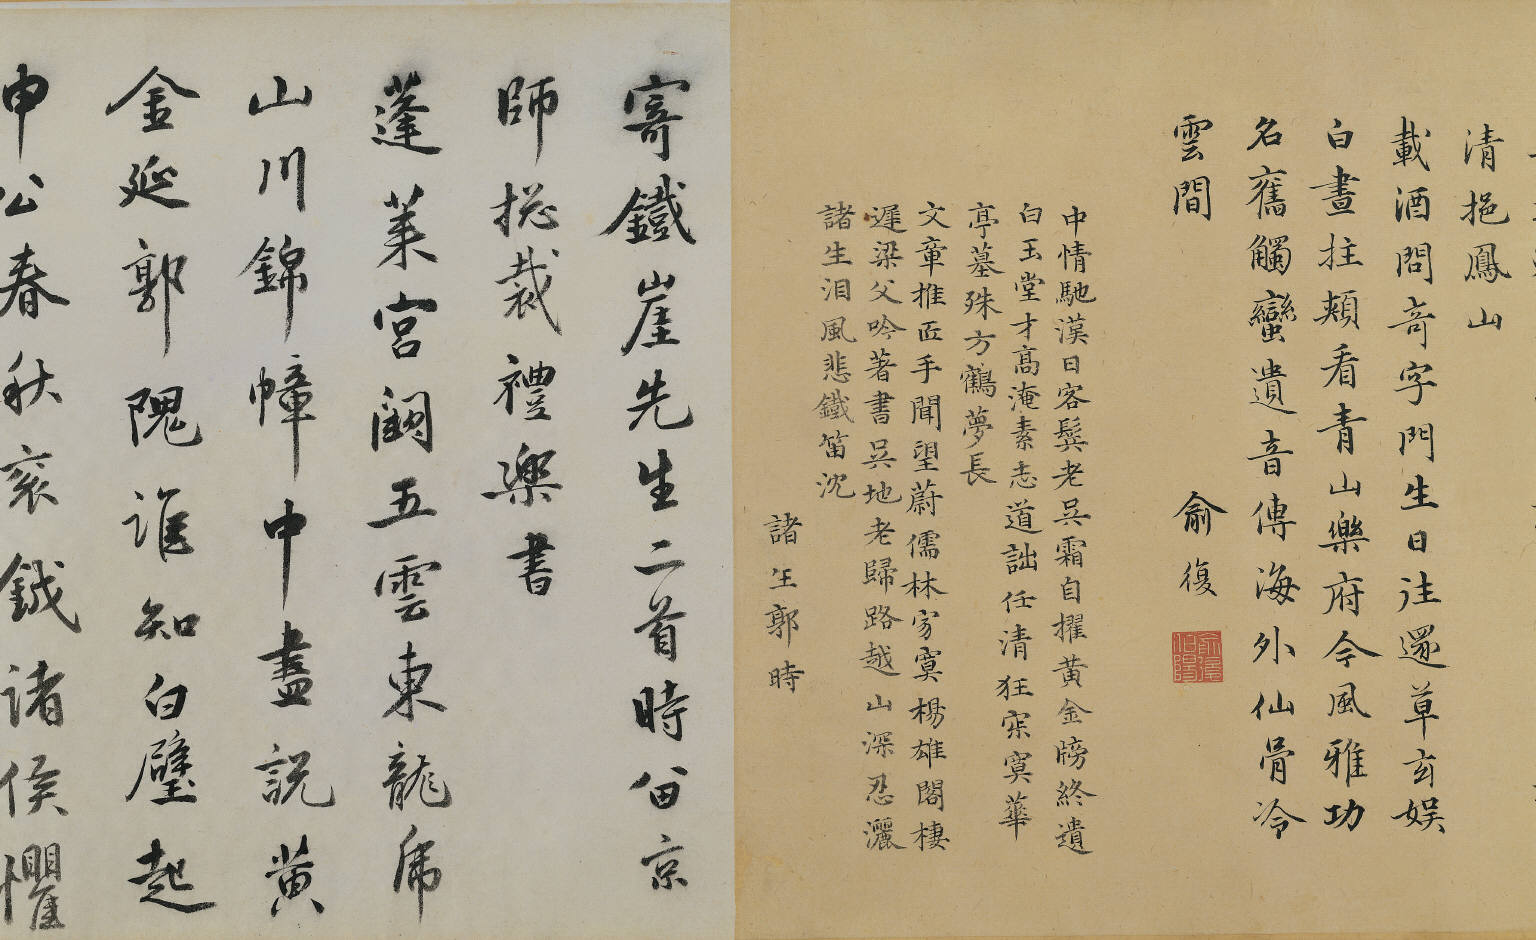 清挹鳳山
載酒問奇字門生日往還草玄娱
白晝拄頰看青山樂府今風雅功
名舊觸蠻遺音傳海外仙骨冷
雲間
俞復
中情馳漢日客鬂老吳霜自擢黃金牓終遺
白玉堂才高淹素志道詘任清狂寂寞華
亭墓殊方鶴夢長
文章推匠手聞望蔚儒林寂寞楊雄閣棲
遲梁父吟著書吳地老歸路越山深忍灑
諸生泪風悲鐵笛沈
諸生郭時
寄鐵崖先生二首時留京
師揔裁禮樂書
蓬萊宮闕五雲東龍虎
山川錦幛中盡説黃
金延郭隗誰知白璧起
申公春秋衮鉞諸侯懼